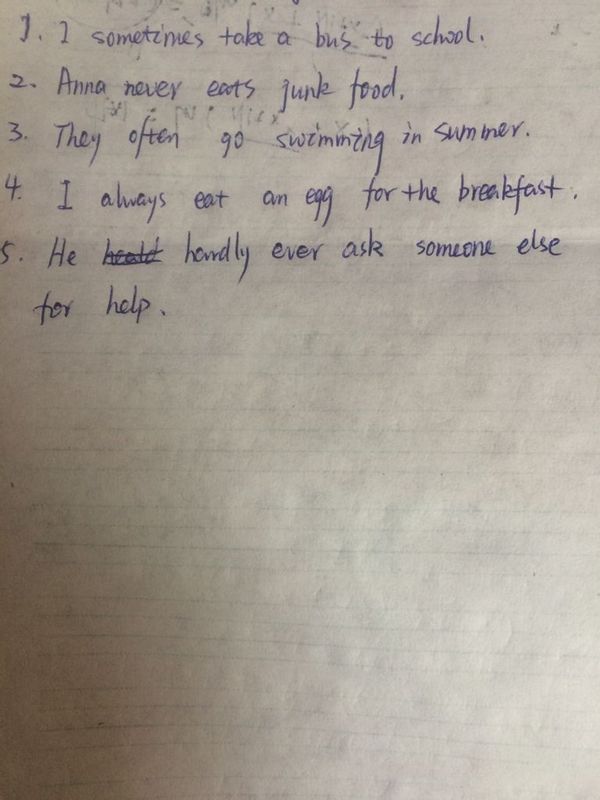 1. I sometimes take a bus to school.
2. Anna never eats junk food.
3. They often go swimming in summer.
4. I always eat an egg for the breakfast.
5. He hardly ever ask someone else
for help.